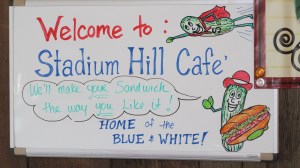 Welcome to :
Stadium Hill Cafe'
We'll make your Sandwich
the way you Like it !
HOME of the
BLUE & WHITE!